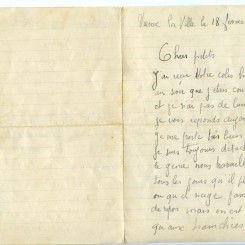 la Ville le 18
Chers petits
J'ai reçu Votre colis hi
au soir que j'etais cou
et je n'ai pas de
je vous reponds aujou
je me porte très bien
Je suis toujours détach
le genie nous travaill
tous les jours qu'il p
ou qu'il neige jam
de repos mais on est
qu'aux tranchées